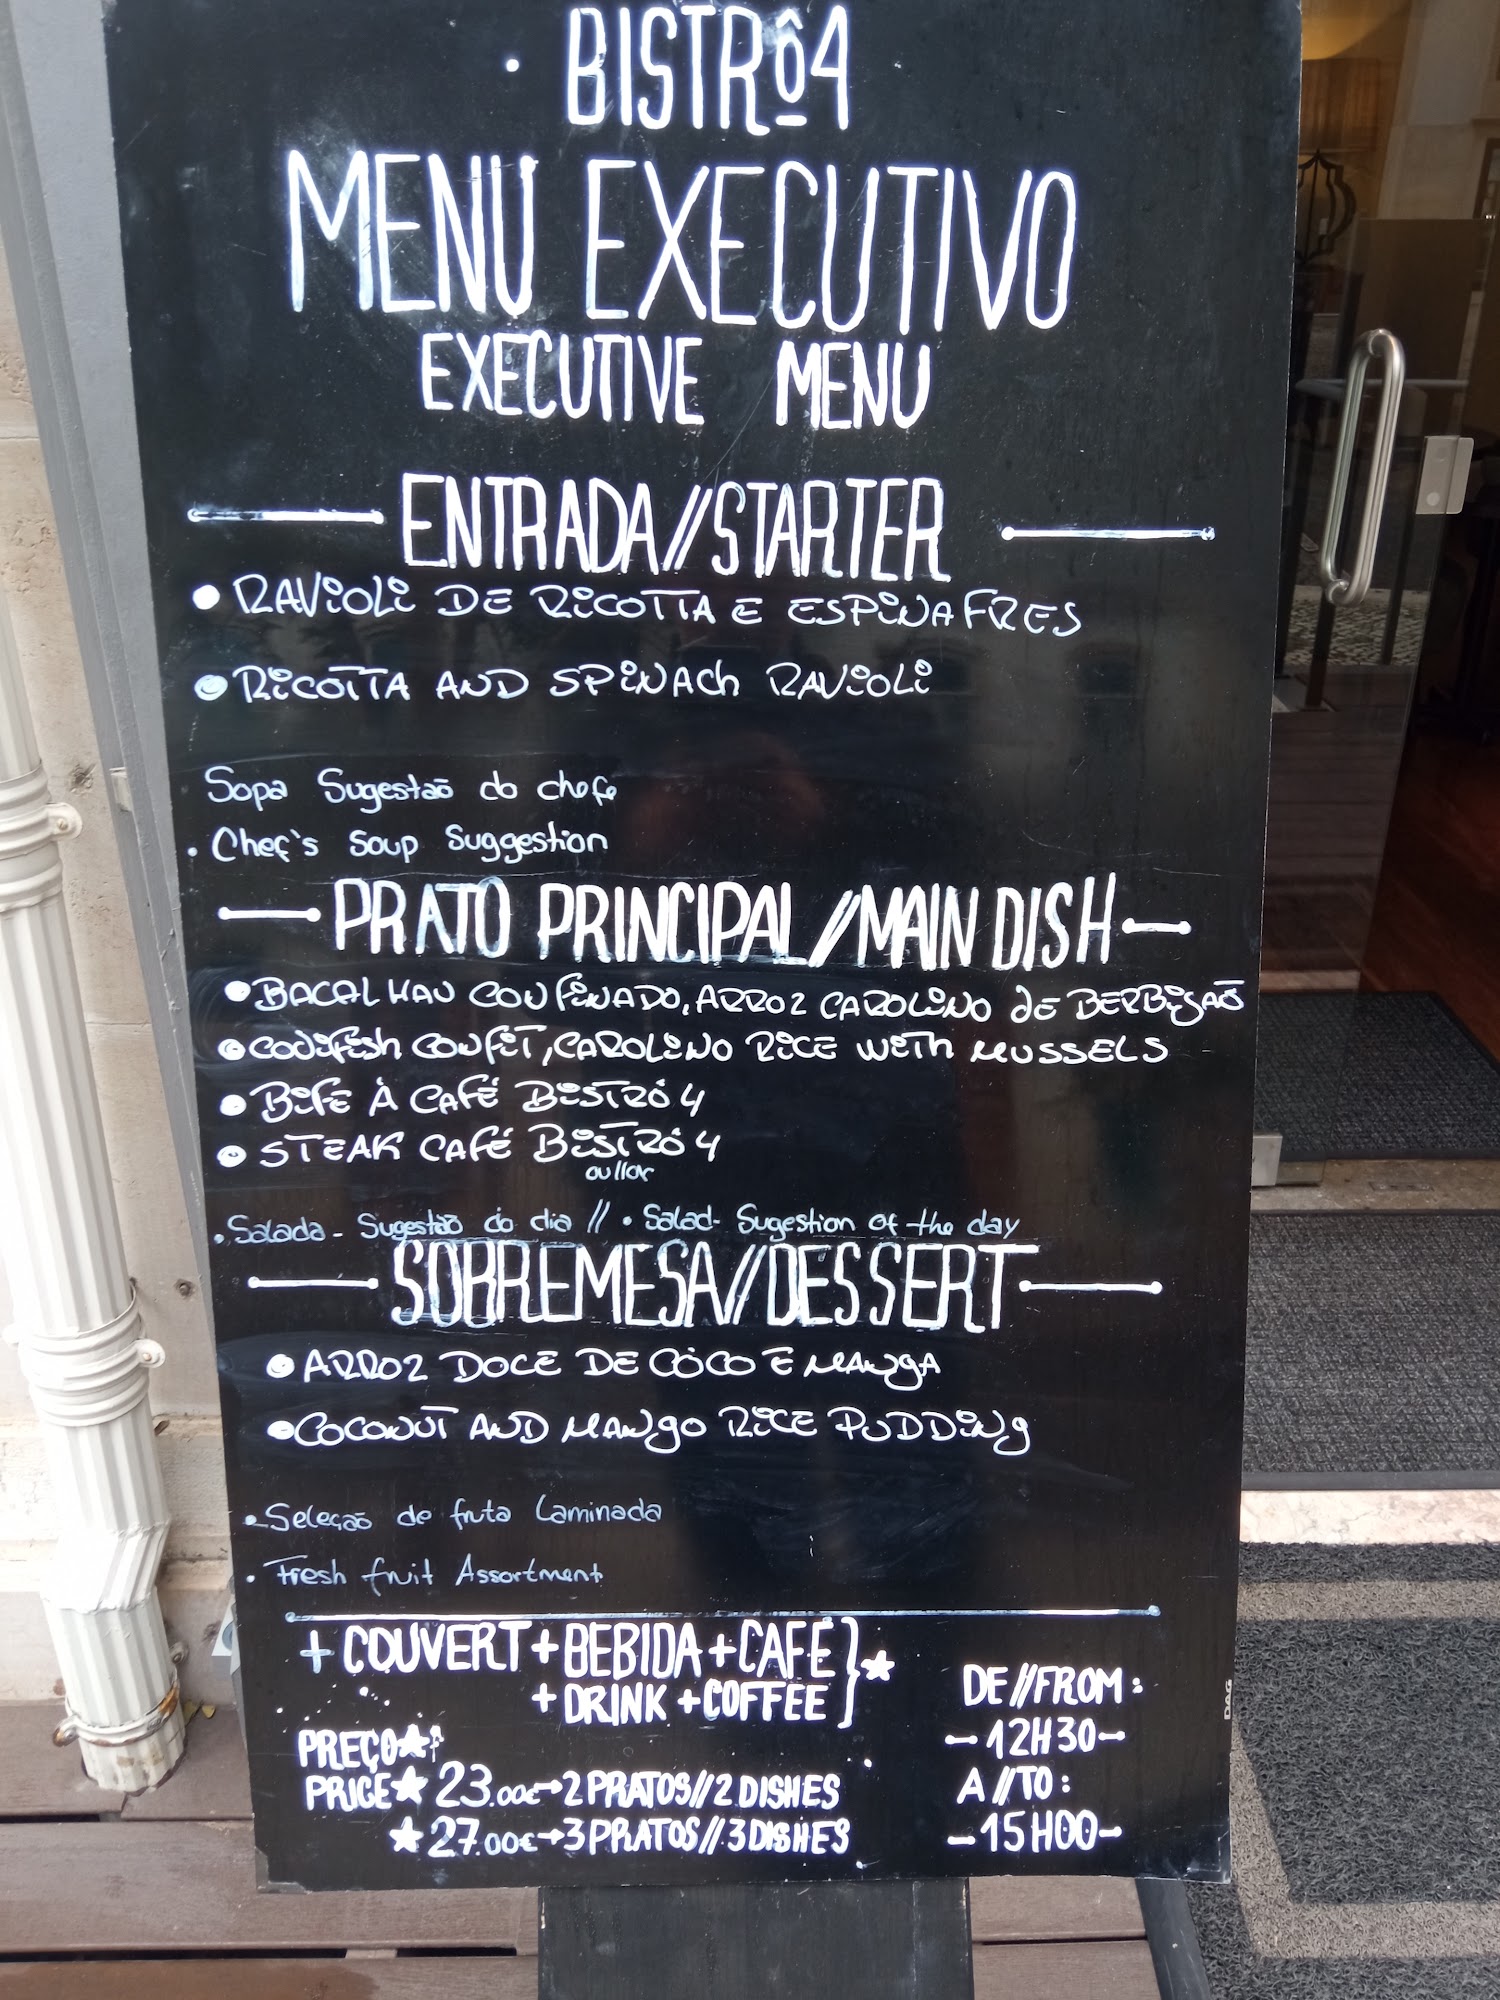 · BISTRÔ4
MENU EXECUTIVO
EXECUTIVE MENU
ENTRADA//STARTER
• RAVIOLI DE RICOTTA E ESPINAFRES
• RICOTTA AND SPINACH RAVIOLI
Sopa Sugestão do chefe
• Chef's Soup Suggestion
PRATO PRINCIPAL//MAIN DISH
• BACALHAU CONFINADO, ARROZ CAROLINO DE BERBIGÃO
• CODIFISH CONFIT, CAROLINO RICE WITH MUSSELS
• BIFE À CAFÉ BISTRÓ 4
• STEAK CAFÉ BISTRÓ 4
ou//or
• Salada - Sugestão do dia // • Salad- Sugestion of the day
SOBREMESA//DESSERT
• ARROZ DOCE DE CÔCO E MANGA
• COCONUT AND MANGO RICE PUDDING
• Seleção de fruta Laminada
• Fresh fruit Assortment
+ COUVERT + BEBIDA + CAFÉ } ★
+ DRINK + COFFEE
PREÇO★
PRICE★ 23.00€→2 PRATOS//2 DISHES
★ 27.00€→3 PRATOS//3 DISHES
DE//FROM:
-12H30-
A//TO:
-15H00-
DAG